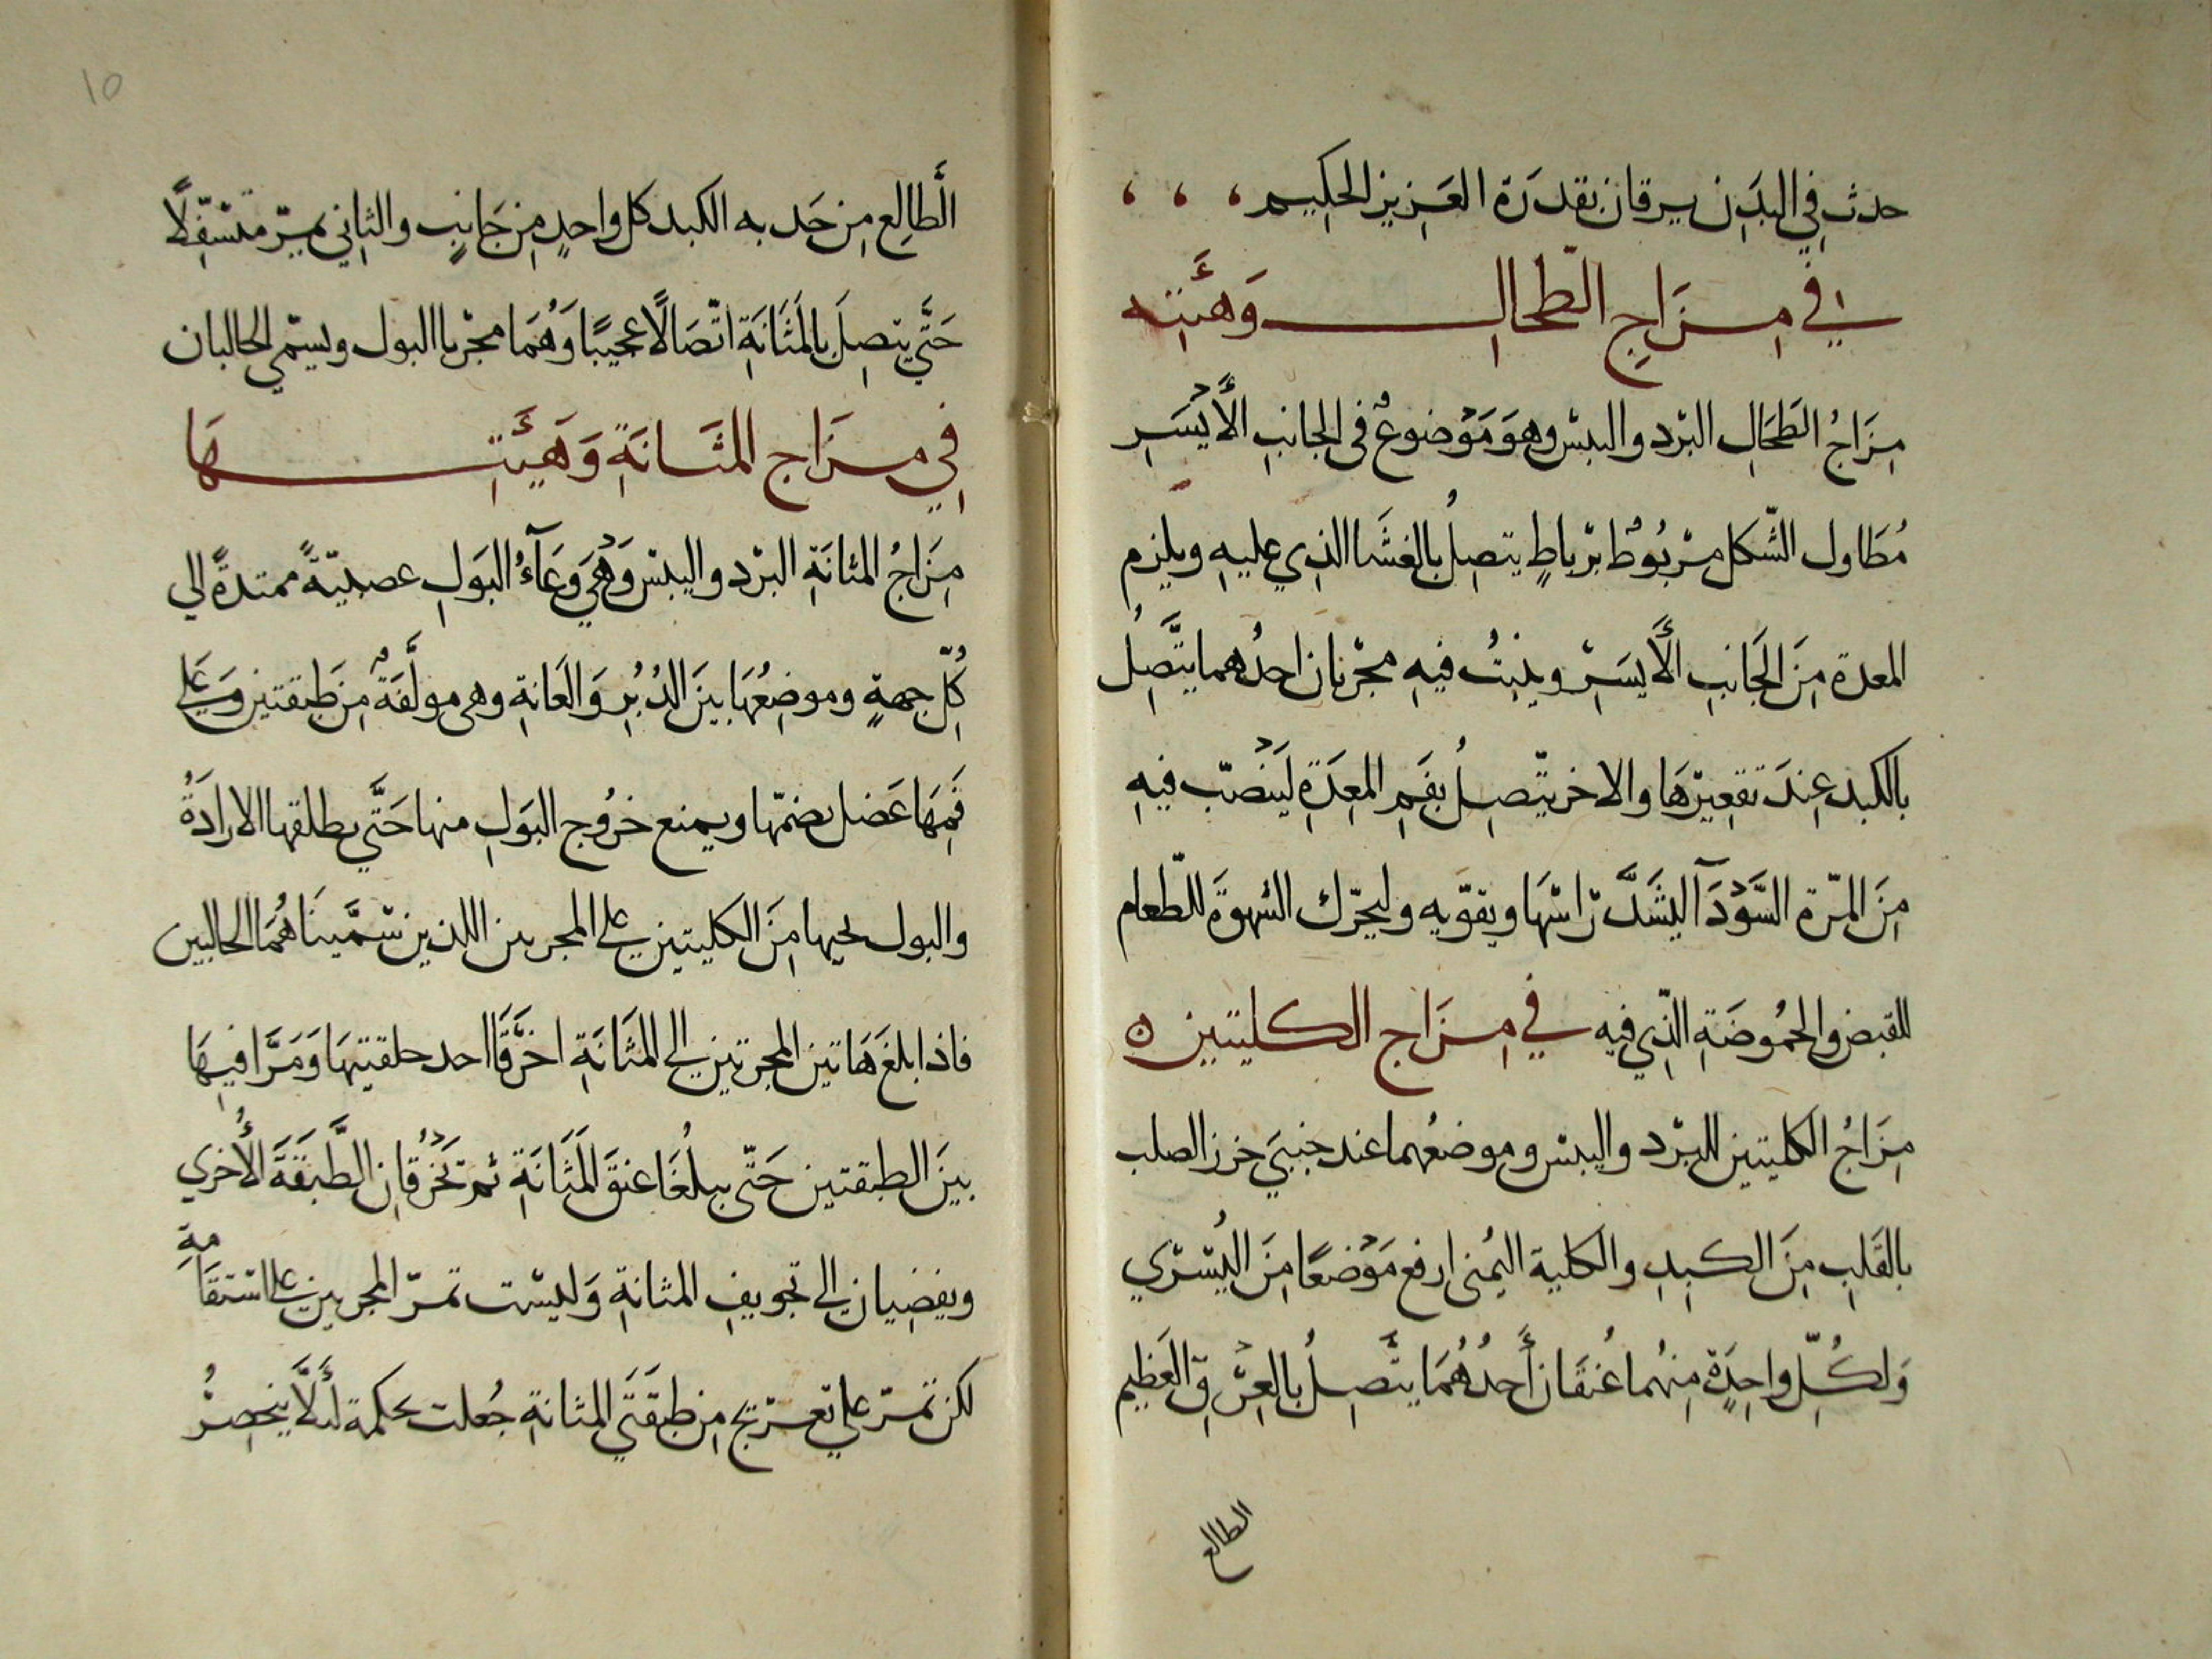 حدث في البدَن يرقان بقدرَة العَزيز الحكِيم
في مِزَاجِ الطّحالِ وَهَيْئَتِه
مِزَاجُ الطَحَالِ البرْد واليبسْ وهوَ مَوْضوعٌ في الجانبِ الأَيْسَرِ
مُطَاول الشّكل مرْبُوطٌ برْباطٍ يتصِلُ بالغشَا الذِي عليهِ ويلزم
المعدة مِنَ الجَانبِ الأَيسَرْ وينبتُ فيهِ مجرْيان احدُهما يتَّصِلُ
بالكبد عِندَ تقعِيرْهَا والاخر يتّصِلُ بفَمِ المعِدَةِ ليَنْصَبّ فيهِ
مِنَ المرّة السَّوْدَآ ليشَدَّ رْاسْهَا ويقوّيه وليحرّك الشهوَة للطّعام
للقبض والحمُوضَةِ الذّي فيه في مِزَاج الكليتين ه
مِزَاجُ الكليتين البرْد واليبسْ وموضعُهما عند جنبيَ خرز الصلب
بالقَلبِ مِنَ الكبِدِ والكلية اليُمنى ارفع مَوْضعًا مِنَ اليُسْرْي
وَلكُلِّ واحِدَةٍ مِنهُما عُنقَان أَحدُهُمَا يتَّصِلُ بالعِرْقِ العَظِيم
الطالع
١٥
الَطالِع مِن حَدبه الكبد كل واحدٍ مِن جَانبٍ والثاني يمرّ متسَفّلًا
حَتَّي يتصِلَ بالمثَانَةِ اتّصَالًا عجيبًا وَهُمَا مجرْيا البول ويسمّي الحالبان
في مِزَاج المثَانَةِ وَهَيئَتِهَا
مِزَاجُ المثانَةِ البرْد واليبسْ وَهْيَ وِعَآءُ البَولِ عصبيّةً ممتدةً الي
كُلّ جهةٍ وموضِعُهَا بينَ الدُبُرِ وَالعَانةِ وهي مولَّفَةٌ مِن طَبقتين وَعَلي
فَمِهَا عَضل يضمّها ويمنع خرُوج البَولِ منها حَتَّي يطلقها الارادَةُ
والبول يجيها مِنَ الكليتين علي المجريين اللذين سْمَّينَاهُمَا الحالبين
فاذا بلغَ هَاتين المجرتين الي المثَانَةِ اخرَقَا احد طبقتيهَا وَمَرَّا فيهَا
بينَ الطبقتين حَتّي يبلُغَا عنقَ المَثَانَةِ ثم تَخْرُقَانِ الطَّبَقَةَ الأُخري
ويفضيان الي تجويفِ المثانةِ وَليسْت تمرّ المجريين علي استقَامةِ
لكن تمرّ علي تعرْيج مِن طبقَتَي المثانةِ جُعلت بحكمة لئَلَّا ينحصِرُْ